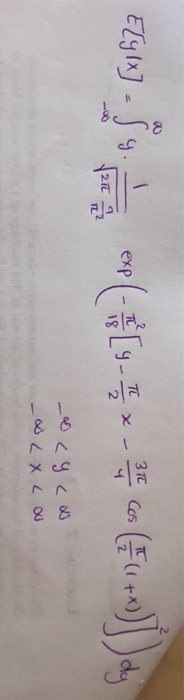 E[y|x] = ∫_{-∞}^{∞} y · 1/√(2π 9/π²) exp(-π²/18 [y - π/2 x - 3π/4 cos(π/2 (1+x))]²) dy
-∞ < y < ∞
-∞ < x < ∞